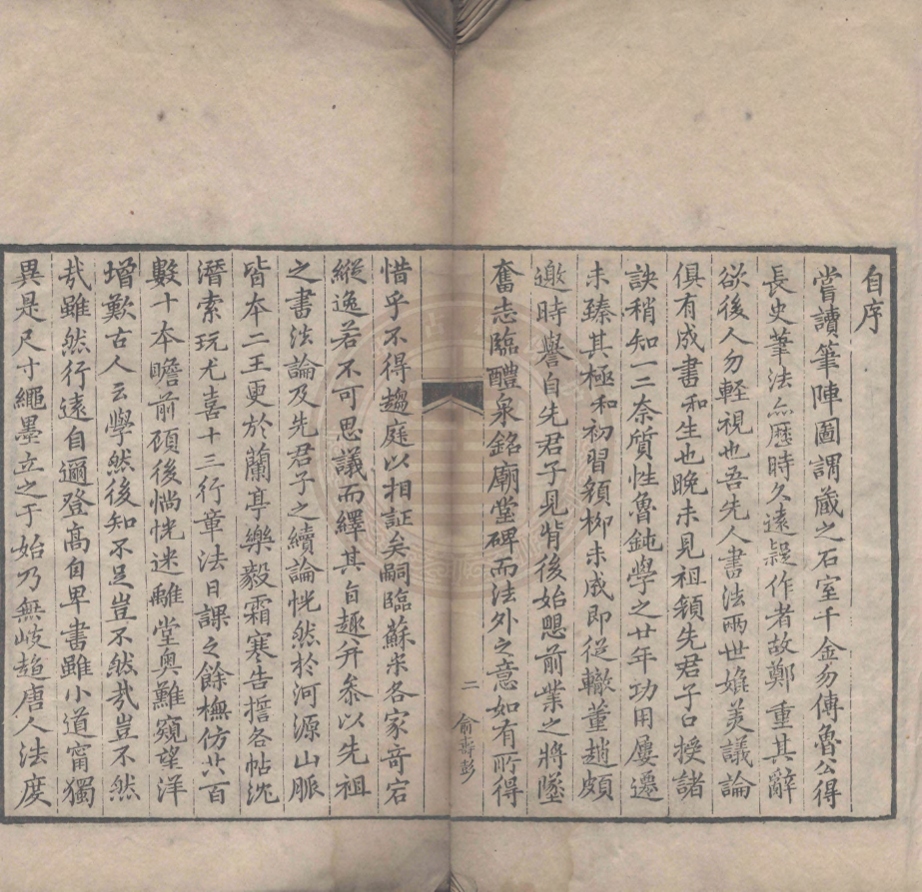 自序
嘗讀筆陣圖謂藏之石室千金勿傳魯公得
長史筆法亦歷時久遠疑作者故鄭重其辭
欲後人勿輕視也吾先人書法兩世媲美議論
俱有成書和生也晚未見祖顏先君子口授諸
訣稍知一二奈質性魯鈍學之廿年功用屢遷
未臻其極和初習顏柳未成即從轍董趙頗
邀時譽自先君子見背後始愳前業之將墜
奮志臨醴泉銘廟堂碑而法外之意如有所得
二
俞壽彭
惜乎不得趨庭以相証矣嗣臨蘇米各家奇宕
縱逸若不可思議而繹其旨趣并叅以先祖
之書法論及先君子之續論恍然於河源山脈
皆本二王更於蘭亭樂毅霜寒告誓各帖沈
潛索玩尤喜十三行章法日課之餘橅仿廿百
數十本瞻前顧後惝恍迷離堂奧難窺望洋
增歎古人云學然後知不足豈不然㢤豈不然
㢤雖然行遠自邇登高自卑書雖小道甯獨
異是尺寸繩墨立之于始乃無岐趨唐人法度